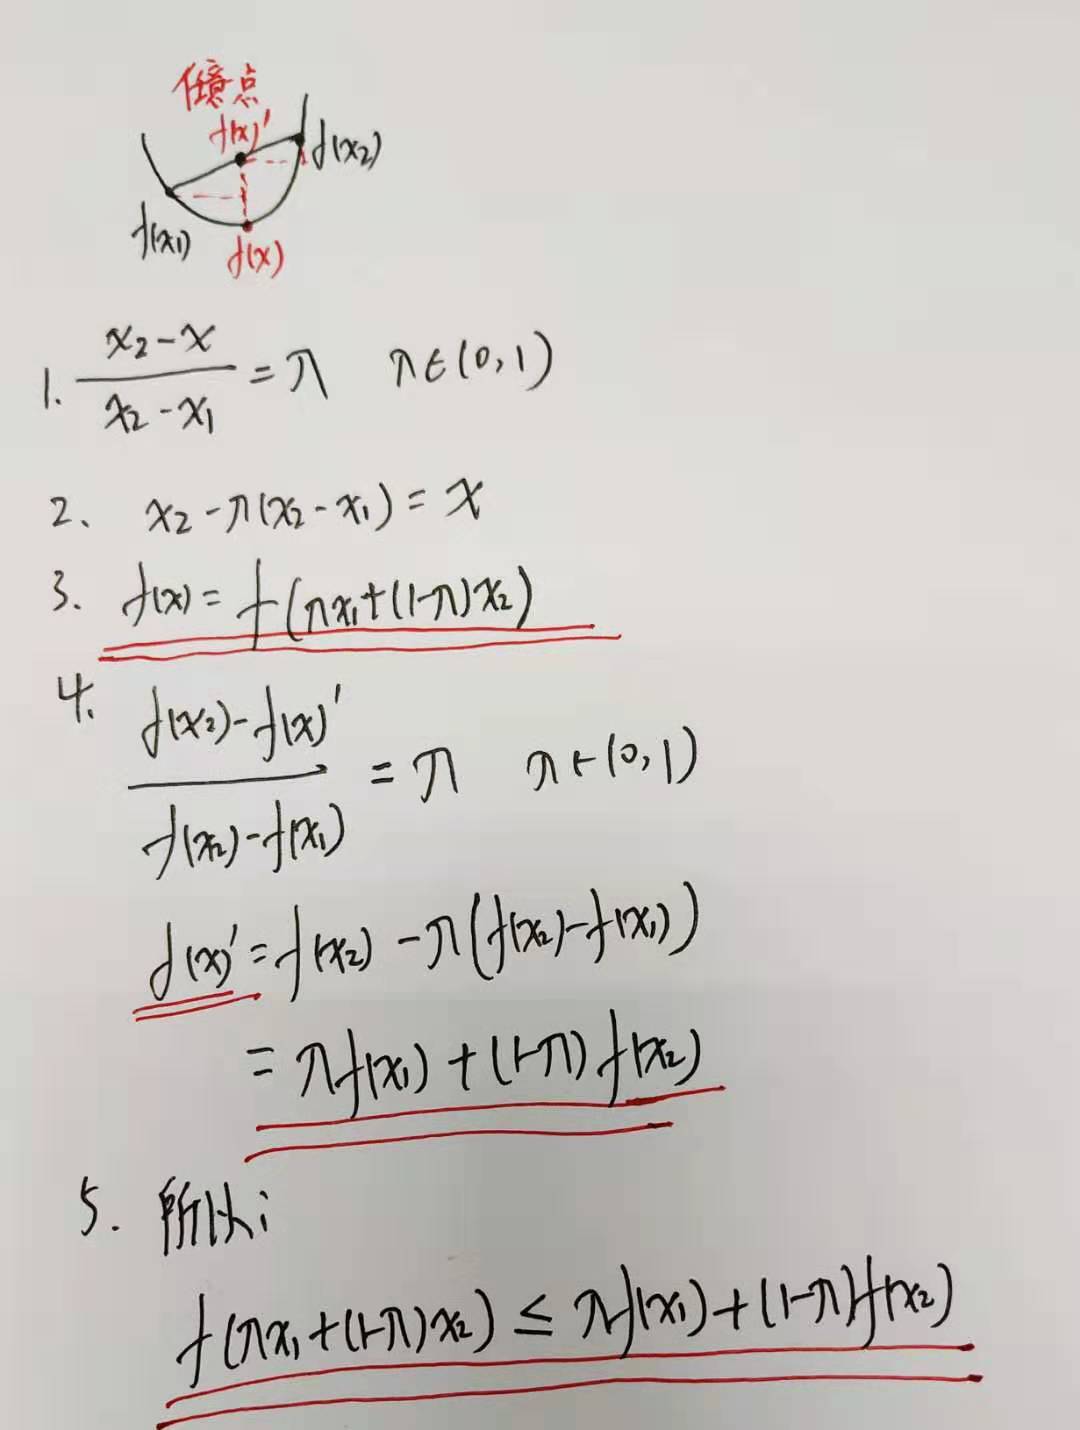 任意点
f(x)'
f(x2)
f(x1)
f(x)
1. (x2-x)/(x2-x1) = π π∈(0,1)
2、 x2-π(x2-x1)=x
3. f(x)=f(πx1+(1-π)x2)
4. (f(x2)-f(x)')/(f(x2)-f(x1)) = π π∈(0,1)
f(x)'=f(x2)-π(f(x2)-f(x1))
=πf(x1)+(1-π)f(x2)
5. 所以:
f(πx1+(1-π)x2)≤πf(x1)+(1-π)f(x2)